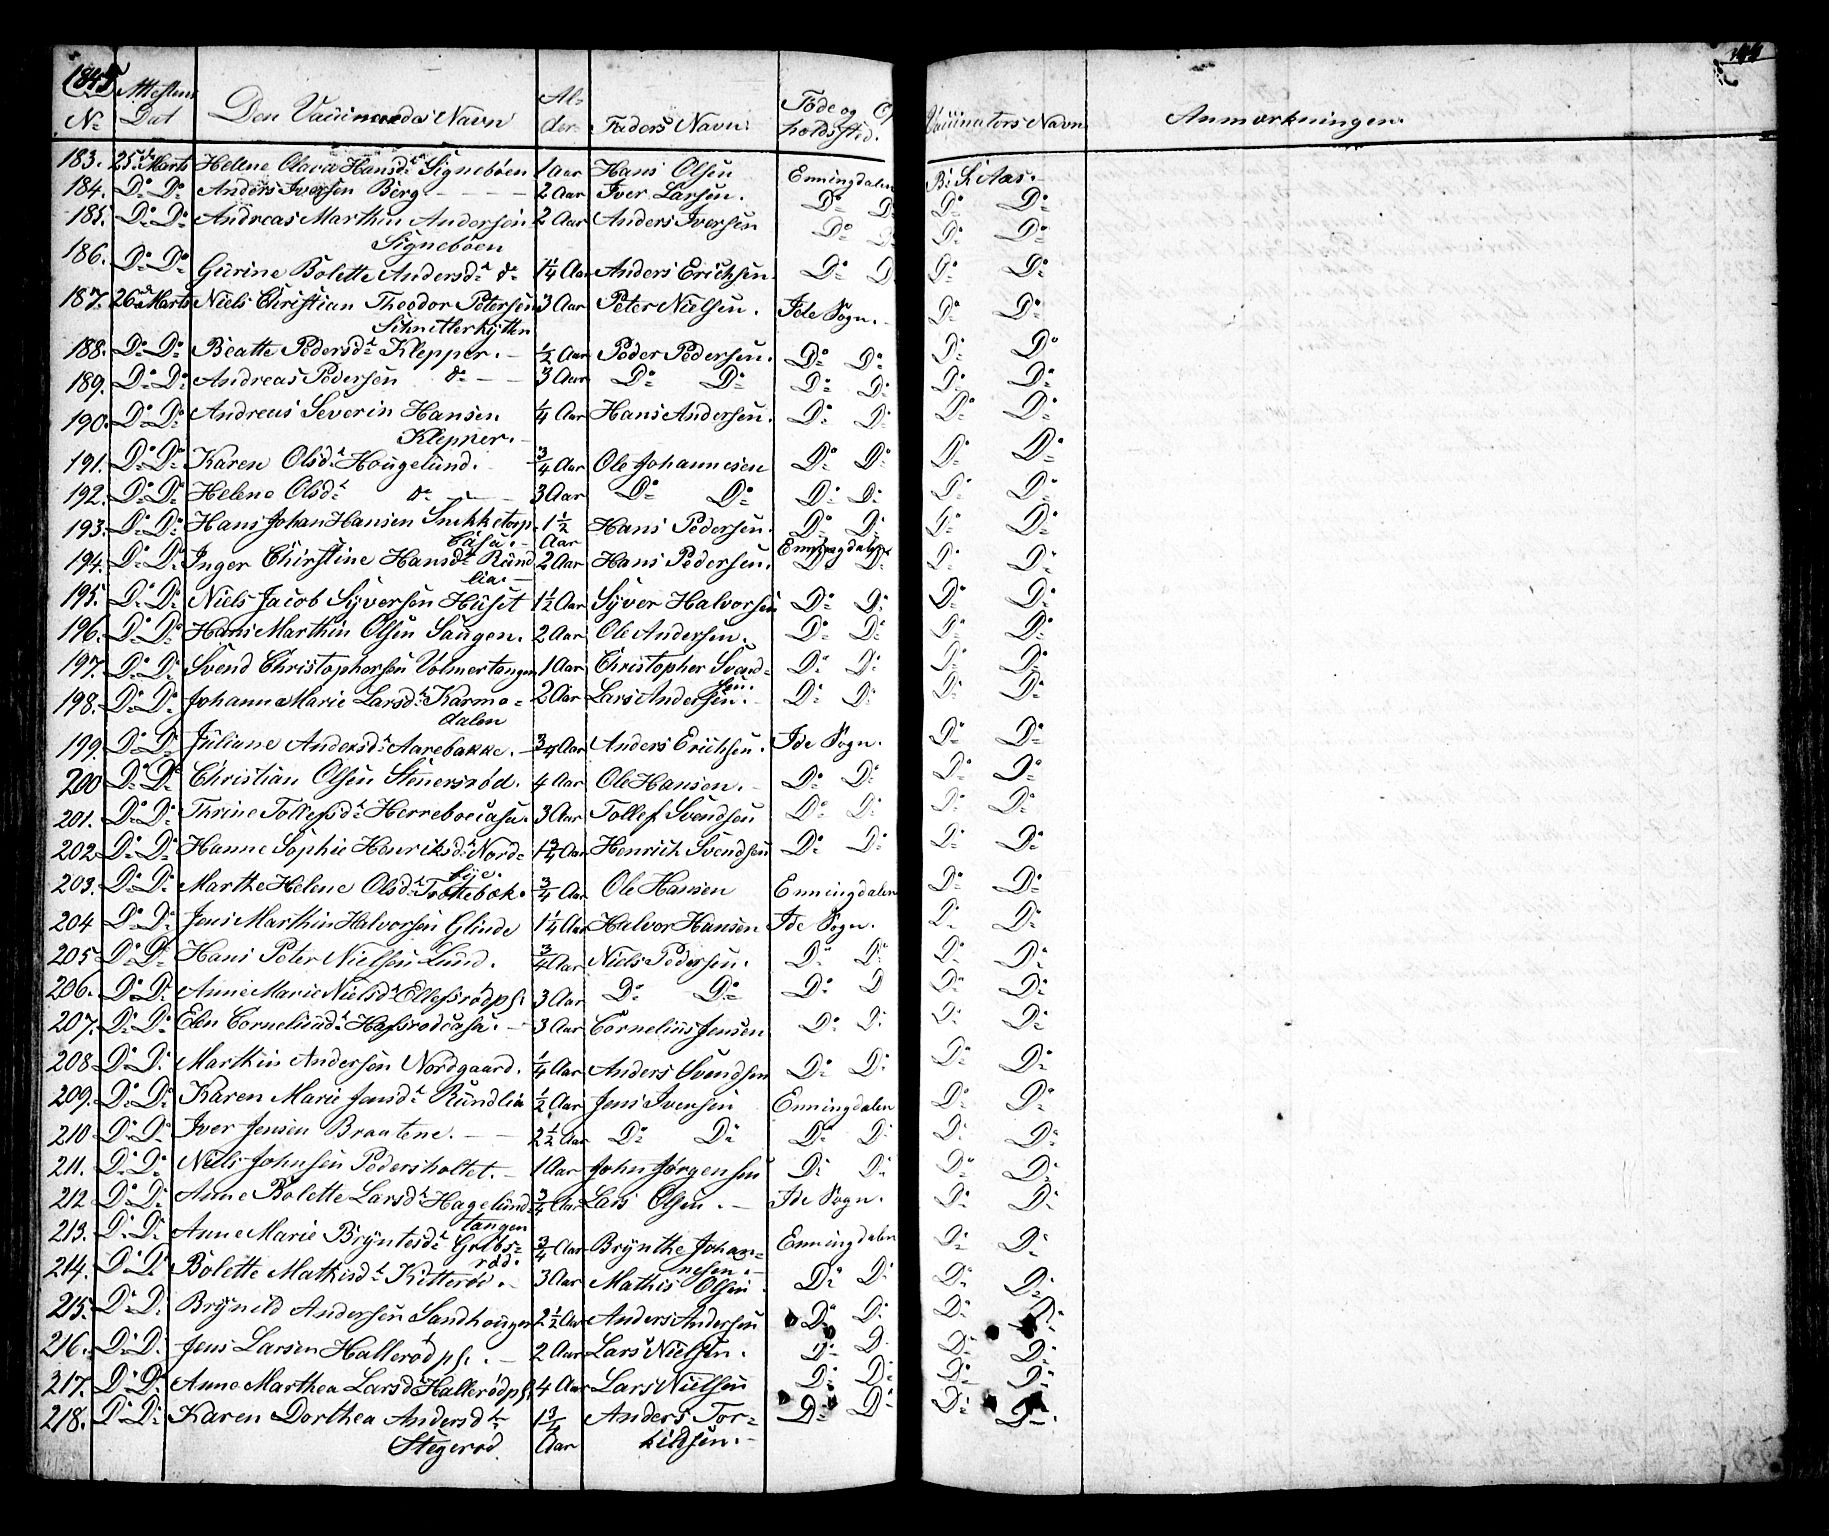 1845
No Attestens Dat Den Vaccineredes Navn Alder Faders Navn Føde og Opholdssted Vaccinators Navn Anmærkninger
183. 25de Marts Helene Olava Hansdr Signebøen 1 Aar Hans Olsen Enningdalen B: S: Aas.
184. Do Do Anders Iversen Berg 2 Aar Iver Larsen. Do Do Do Do
185. Do Do Andreas Marthin Andersen 2 Aar Anders Iversen Do Do Do Do
Signebøen
186. Do Do Gurine Bolette Andersdr do 1¼ Aar Anders Erichsen Do Do Do Do
187. 26de Marts Niels Christian Theodor Petersen 3 Aar Peter Nielsen. Ide Sogn. Do Do
Schnitlerhytten
188. Do Do Beatte Pedersdr Klepper. ½ Aar Peder Pedersen. Do Do Do Do
189. Do Do Andreas Pedersen do 3 Aar Do Do Do Do Do Do
190. Do Do Andreas Severin Hansen ¼ Aar Hans Andersen. Do Do Do Do
Klepper.
191. Do Do Karen Olsdr Hougelund. ¾ Aar Ole Johannesen Do Do Do Do
192. Do Do Helene Olsdr do 3 Aar Do Do Do Do Do Do
193. Do Do Hans Johan Hansen Snekketorp 1½ Hans Pedersen. Do Do Do Do
Casa. Aar
194. Do Do Inger Chirstine Hansdr Rund 2 Aar Hans Pedersen. Enningdalen Do Do
lia.
195. Do Do Niels Jacob Syversen Huset 1½ Aar Syver Halvorsen Do Do Do Do
196. Do Do Hans Marthin Olsen Saugen. 2 Aar Ole Andersen. Do Do Do Do
197. Do Do Svend Christophersen Volmertangen 1 Aar Christopher Svend- Do Do Do Do
sen.
198. Do Do Johanne Marie Larsdr Karmo- 2 Aar Lars Andersen. Do Do Do Do
dalen
199. Do Do Juliane Andersdr Aarebakke. ¾ Aar Anders Erichsen. Ide Sogn. Do Do
200 Do Do Christian Olsen Stenersrød. 4 Aar Ole Hansen. Do Do Do Do
201. Do Do Thrine Tollefsdr Herreboecasa. 3 Aar Tollef Svendsen Do Do Do Do
202. Do Do Hanne Sophie Henriksdr Nord- 1¾ Aar Henrich Svendsen Do Do Do Do
bye.
203. Do Do Marthe Helene Olsdr Trottebæk. ¾ Aar Ole Hansen Enningdalen Do Do
204 Do Do Jens Marthin Halvorsen Glinde 1¼ Aar Halvor Hansen Ide Sogn. Do Do
205 Do Do Hans Peter Nielsen Lund. ¾ Aar Niels Pedersen. Do Do Do Do
206. Do Do Anne Marie Nielsdr Ellefsrødpl. 3 Aar Do Do Do D Do Do
207. Do Do Elen Corneliusdr Hafsrødcasa. 3 Aar Cornelius Jensen Do Do Do Do
208 Do Do Marthin Andersen Nordgaard. ¼ Aar Anders Svendsen Do Do Do Do
209. Do Do Karen Marie Jensdr Rundlia ½ Aar Jens Ivensen Enningdalen Do Do
210 Do Do Iver Jensen Braatene. 2½ Aar Do Do Do Do Do Do
211. Do Do Niels Johnsen Pedersholtet. 1 Aar John Jørgensen Do Do Do Do
212 Do Do Anne Bolette Larsdr Hagelund ¾ Aar Lars Olsen. Ide Sogn. Do Do
tangen
213. Do Do Anne Marie Bryntesdr Grøbs- ¾ Aar Brynthe Johan- Enningdalen Do Do
rød. nesen.
214. Do Do Bolette Mathisdr Kitterød. 3 Aar Mathis Olsen Do Do Do Do
215. Do Do Brynild Andersen Sandhougen 2½ Aar Anders Andersen Do Do Do Do
216. Do Do Jens Larsen Hallerødpl. 2 Aar Lars Nielsen. Do Do Do Do
217. Do Do Anne Marthea Larsdr Hallerødpl. 4 Aar Lars Nielsen Do Do Do Do
218. Do Do Karen Dorthea Andersdr 1¾ Anders Tor- Do Do Do Do
Stegerød Aar kildsen.